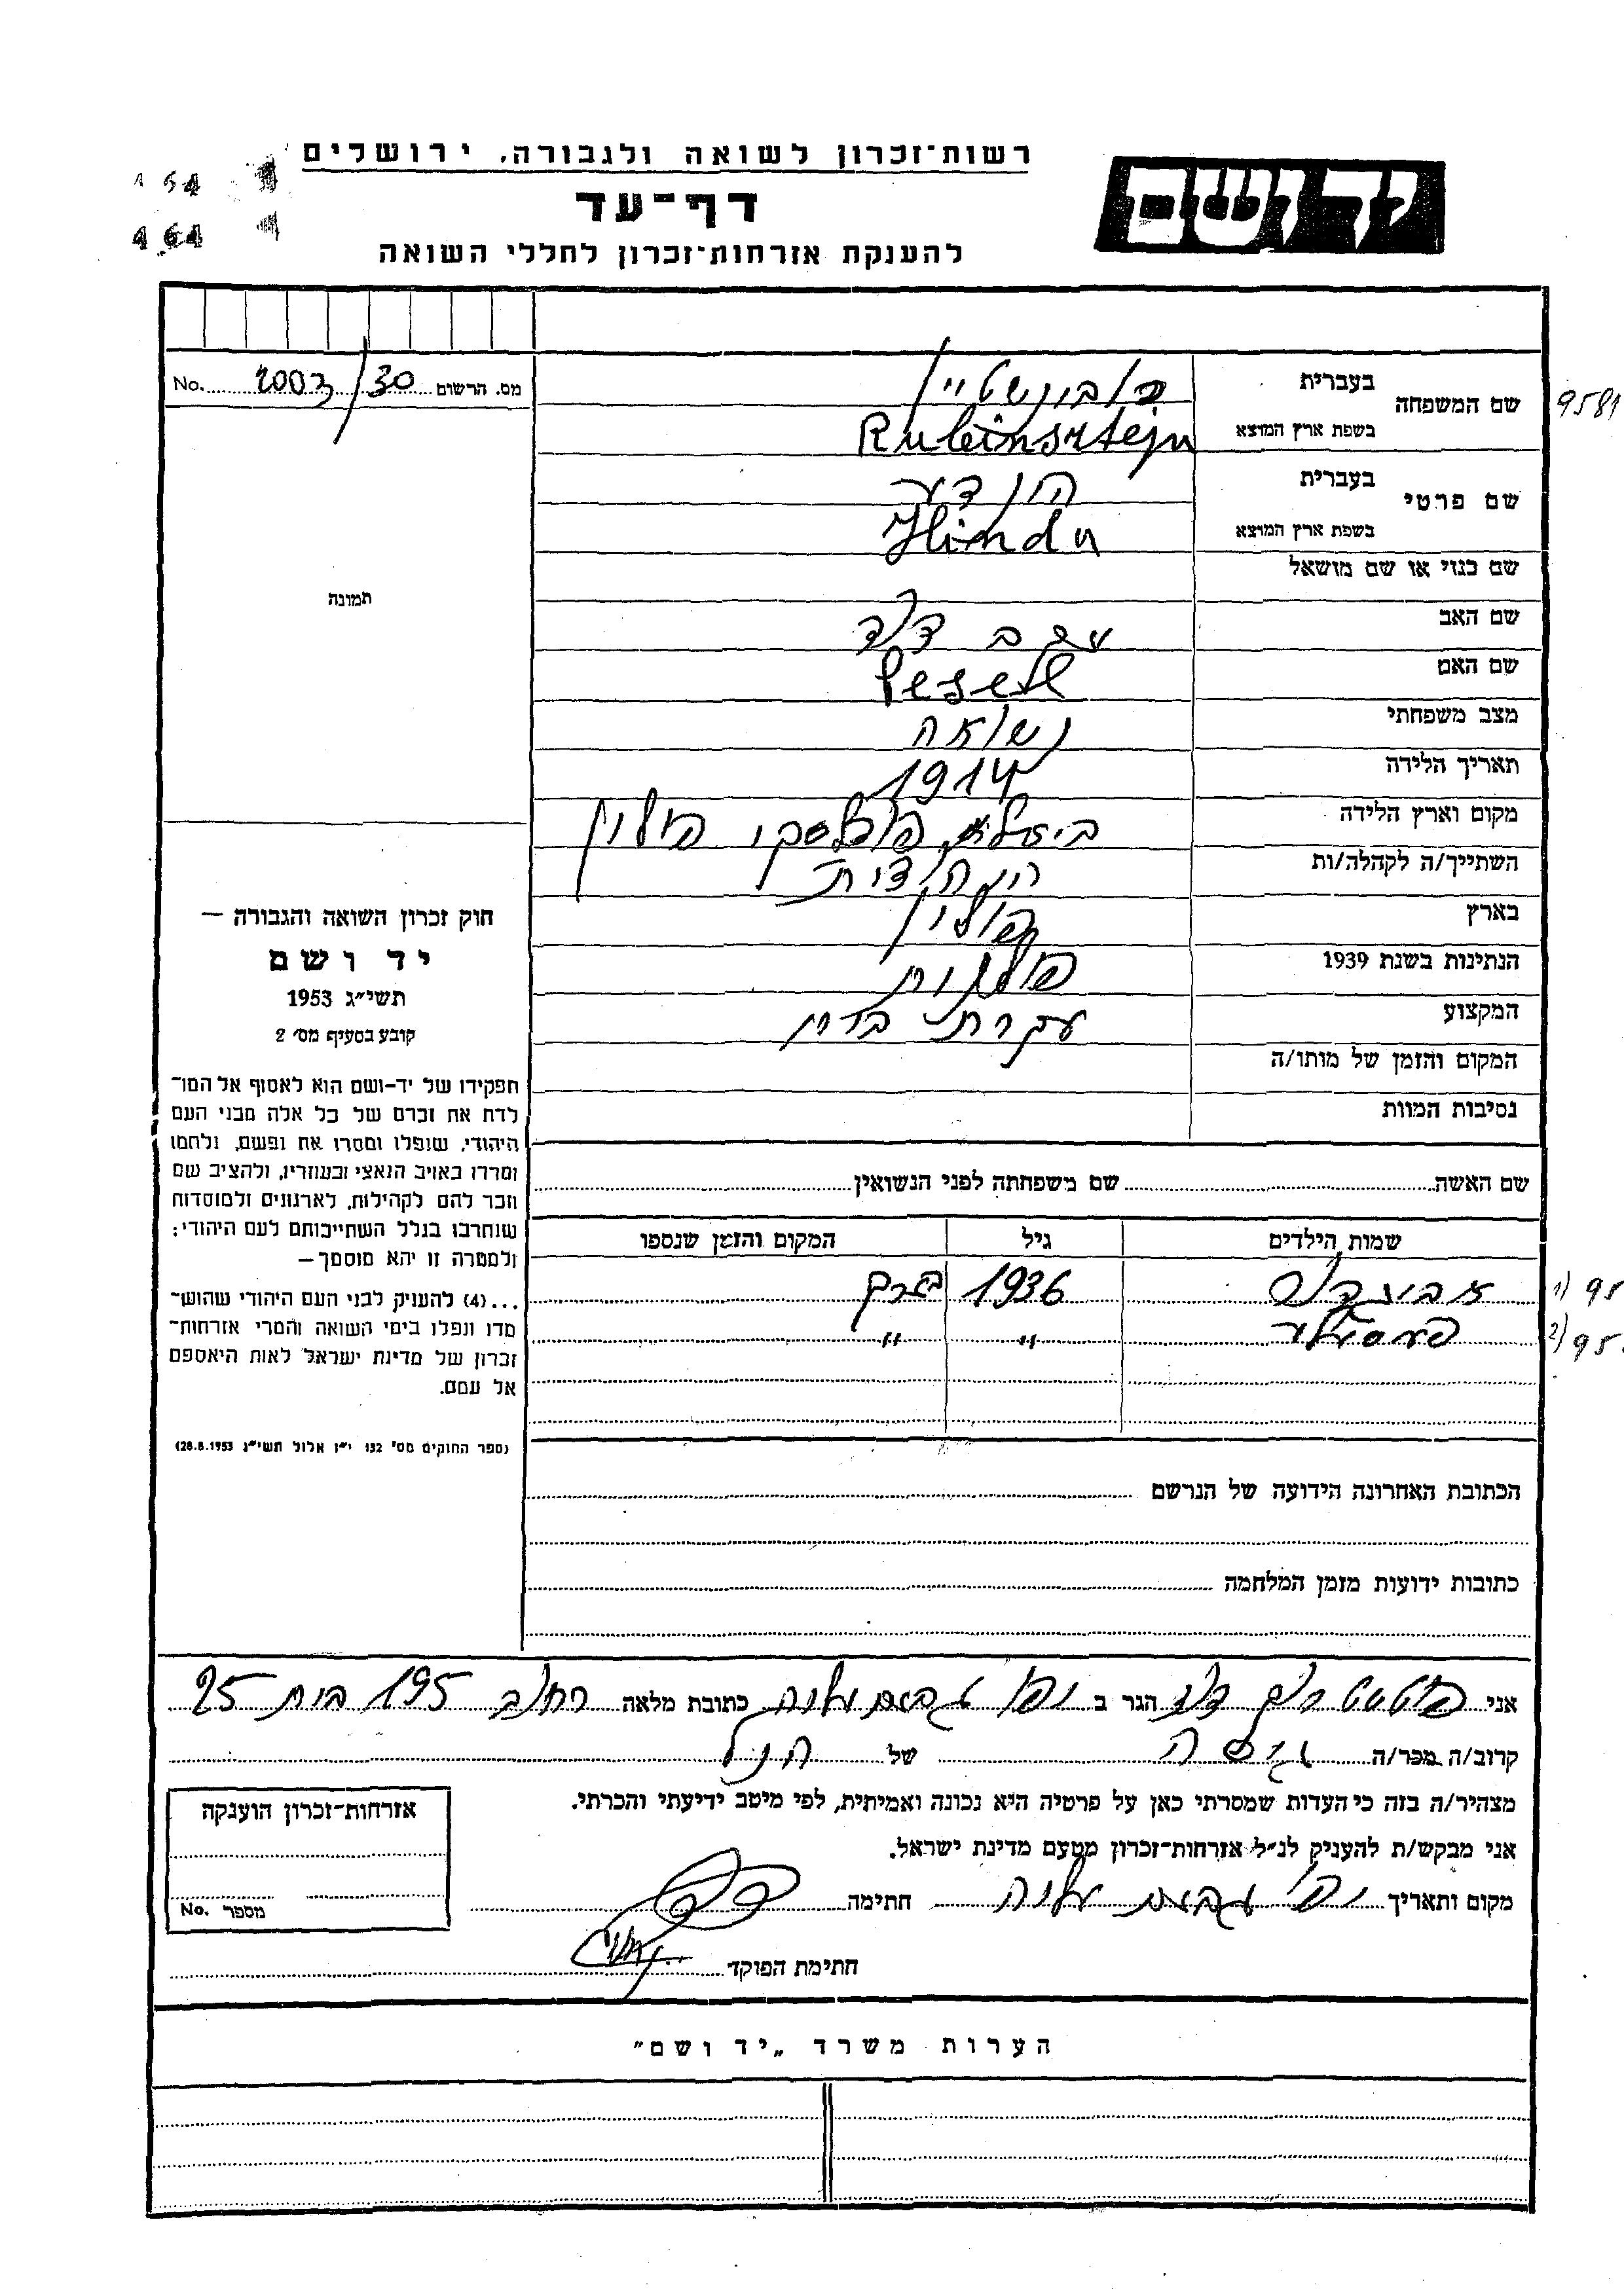 רשות-זכרון לשואה ולגבורה, ירושלים
דף-עד
להענקת אזרחות-זכרון לחללי השואה
יד ושם
154
464
מס. הרשום 2003/30 No.
שם המשפחה
בעברית
בשפת ארץ המוצא Rubeinsztejn
9581
שם פרטי
בעברית הנדע
בשפת ארץ המוצא Hinda
שם כנוי או שם מושאל
שם האב דוד
שם האם Pesel
מצב משפחתי נשואה
תאריך הלידה 1914
מקום וארץ הלידה ביאלא פודלסקי פולין
השתייך/ה לקהלה/ות היהודית
בארץ פולין
הנתינות בשנת 1939 פולנית
המקצוע עקרת בית
המקום והזמן של מותו/ה
נסיבות המוות
תמונה
חוק זכרון השואה והגבורה —
יד ושם
תשי״ג 1953
קובע בסעיף מס׳ 2
תפקידו של יד-ושם הוא לאסוף אל המו-
לדת את זכרם של כל אלה מבני העם
היהודי, שנפלו ומסרו את נפשם, נלחמו
ומרדו באויב הנאצי ובעוזריו, ולהציב שם
וזכר להם לקהילות, לארגונים ולמוסדות
שנחרבו בגלל השתייכותם לעם היהודי;
ולמטרה זו יהא מוסמך —
...(4) להעניק לבני העם היהודי שהוש-
מדו ונפלו בימי השואה והמרי אזרחות-
זכרון של מדינת ישראל לאות היאספם
אל עמם.
(ספר החוקים מס׳ 132 י״ז אלול תשי״ג 28.8.1953)
שם האשה שם משפחתה לפני הנשואין
שמות הילדים גיל המקום והזמן שנספו
1936 1) 95
" " 2) 95
הכתובת האחרונה הידועה של הנרשם
כתובות ידועות מזמן המלחמה
אני הגר ב כתובת מלאה רחוב 195 בית 25
קרוב/ה מכר/ה גיסה של הנ״ל
מצהיר/ה בזה כי העדות שמסרתי כאן על פרטיה היא נכונה ואמיתית, לפי מיטב ידיעתי והכרתי.
אני מבקש/ת להעניק לנ״ל אזרחות-זכרון מטעם מדינת ישראל.
מקום ותאריך חתימה
חתימת הפוקד
אזרחות-זכרון הוענקה
מספר No.
הערות משרד „יד ושם״